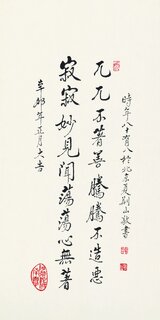 兀兀不著善騰騰不造惡
寂寂妙見聞蕩蕩心無著
時年八十有八於北京
辛卯年正月六吉